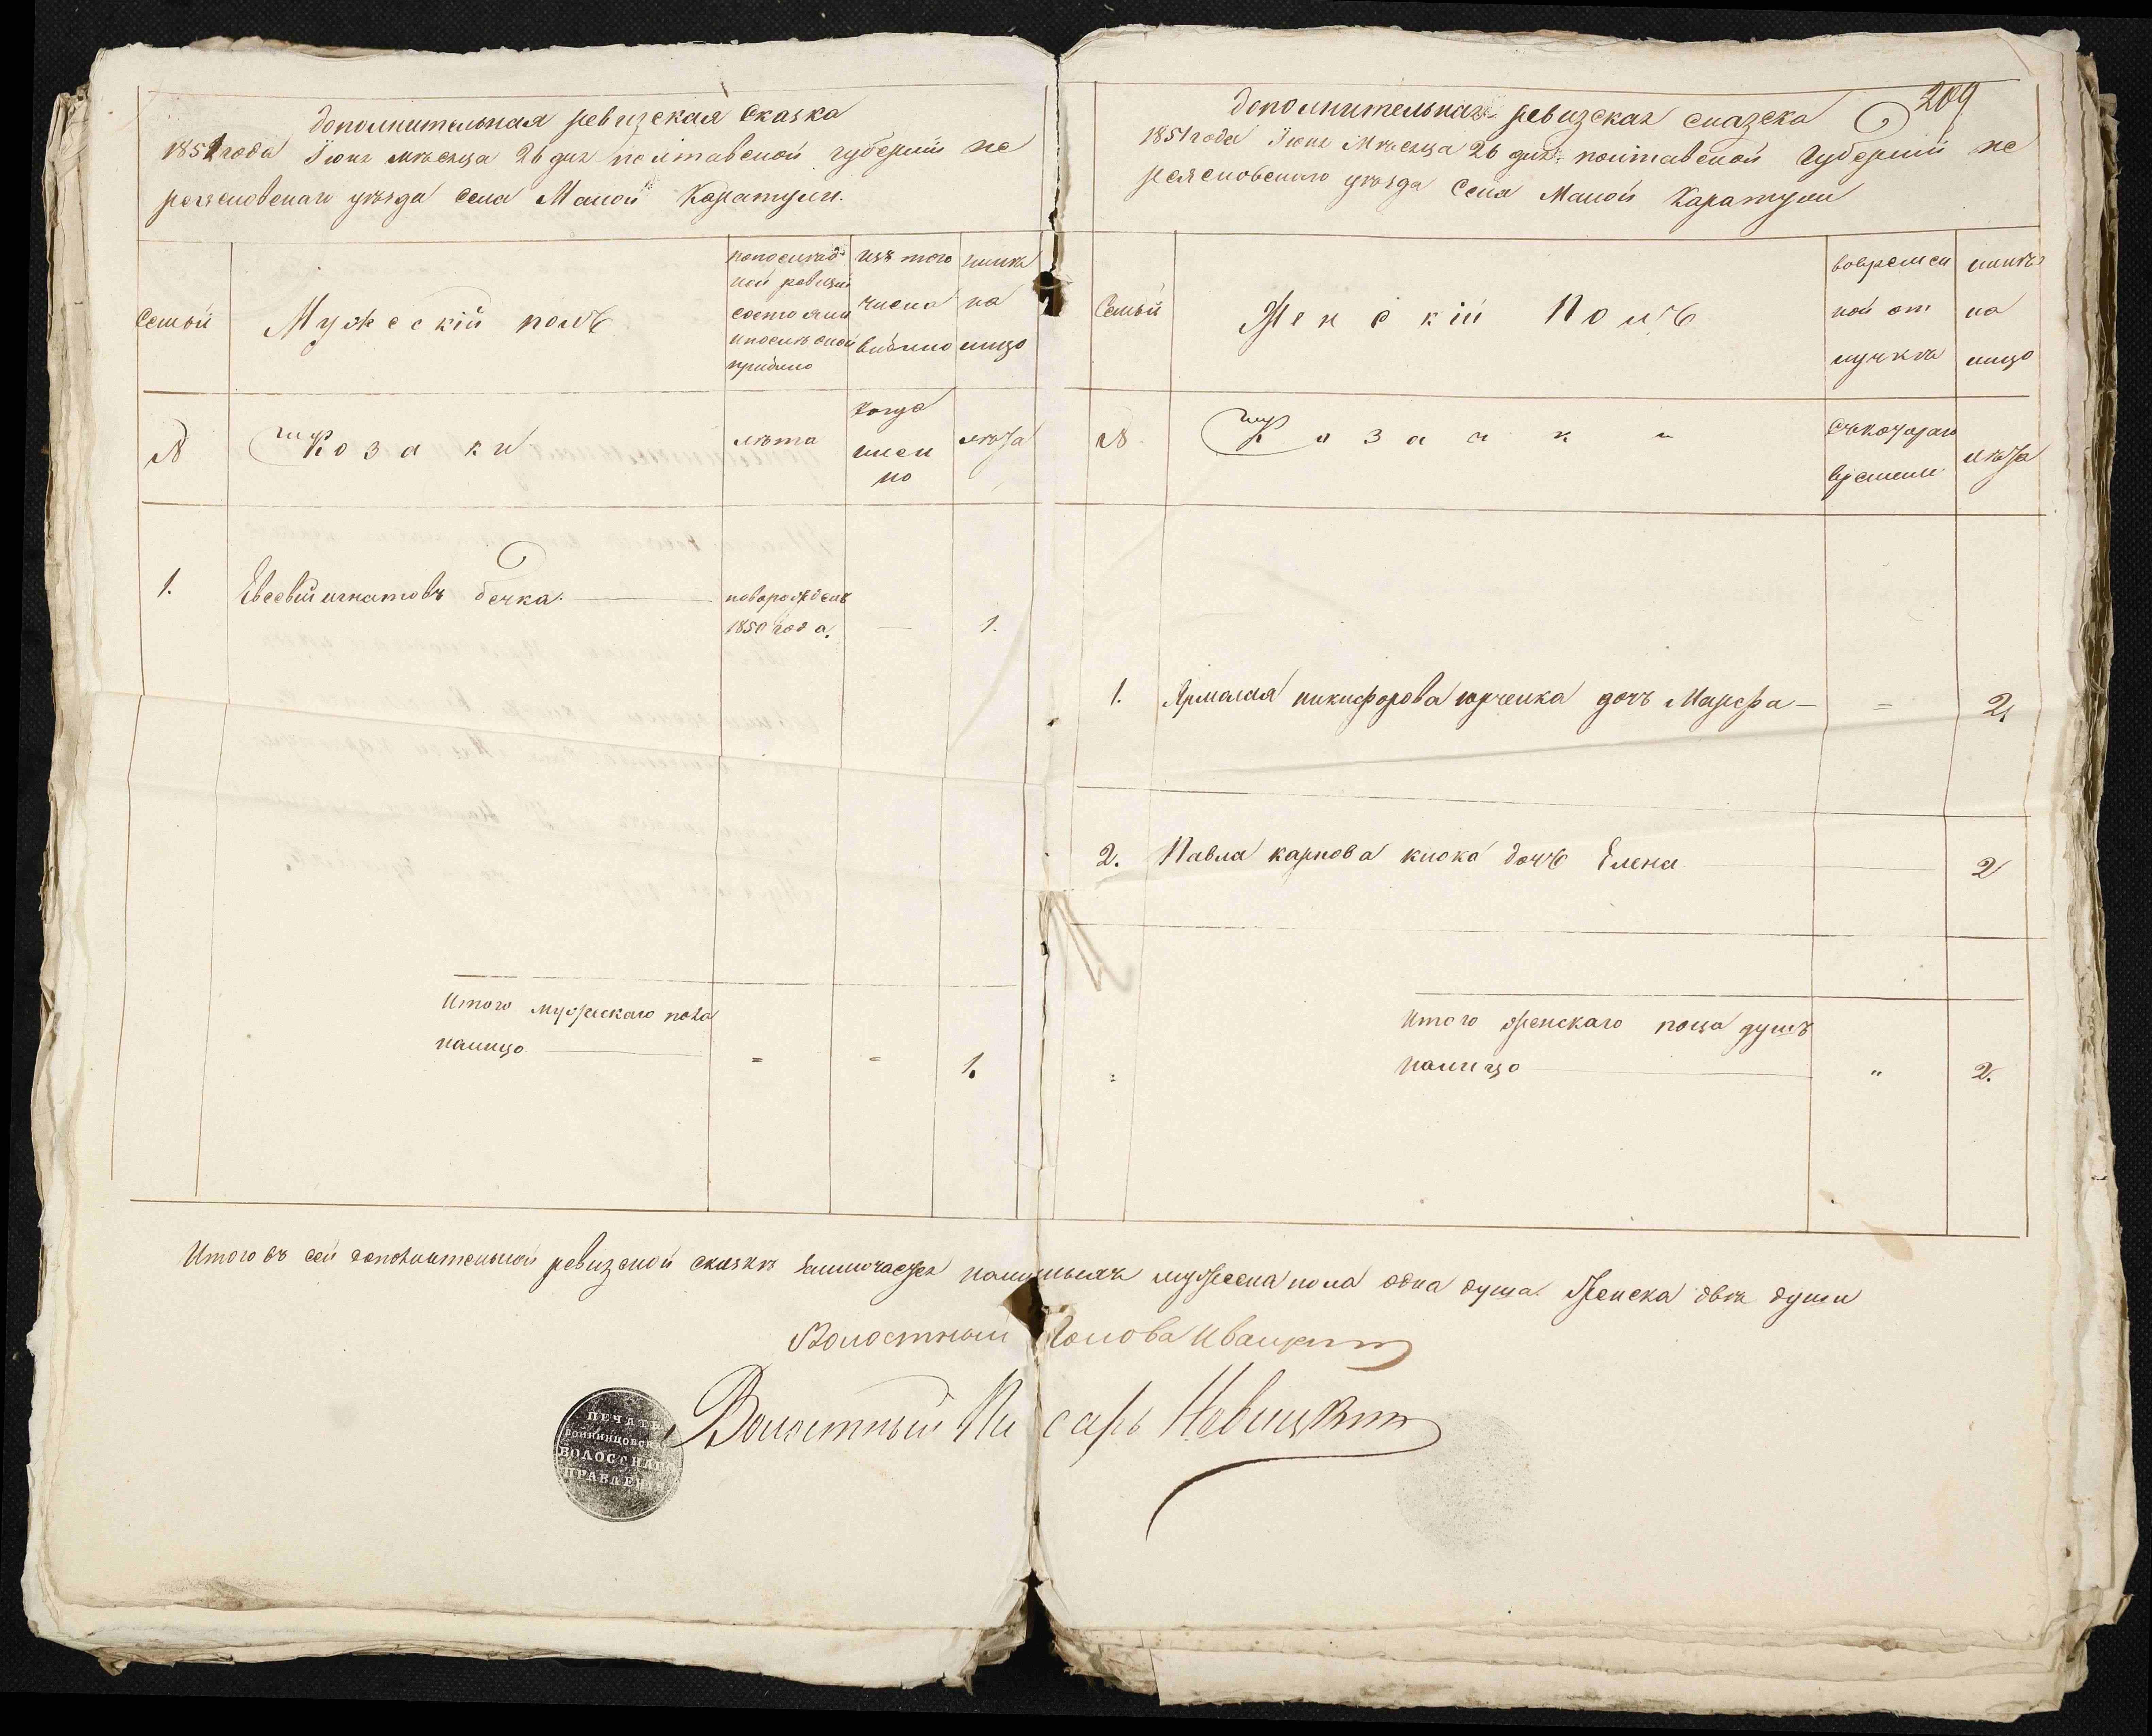 дополнительная ревизская сказка
1851 года Іюня мѣсяца 26 дня полтавской губерніи пе
реясловскаго уѣзда села Малой Каратули.
Семьи
Мужескій полъ
попослѣд
ней ревизіи
состояли
ипослѣ оной
прибыло
изъ того
числа
выбыло
нынѣ
на
лицо
№
Козаки
лѣта
когда
имен
но
лѣта
1.
Евсевій игнатовъ бечка.
новорожденъ
1850 года.
—
1.
Итого мужескаго пола
налицо
=
=
1.
209
дополнительная ревизская сказска
1851 года Іюня Мѣсяца 26 дня полтавской Губерніи пе
реясловскаго уѣзда Села Малой Каратули
Семьи
Женскій Полъ
вовремен
ной от
лучкѣ
нынѣ
на
лицо
№
Козачки
Съкотораго
времени
лѣта
1.
Ярмалая никифорова юрченка дочь Марфа —
=
2.
2.
Павла карпова клока дочь Елена
2
Итого женскаго пола душъ
налицо
"
2.
Итого въ сей дополнительной ревизской сказкѣ заключается наличныхъ мужеска пола одна душа. Женска двѣ души
Волостный Голова Иваицкий
Волостный Писарь Новицкий
ПЕЧАТЬ
ВОЛОСТНАГО
ПРАВЛЕНІЯ